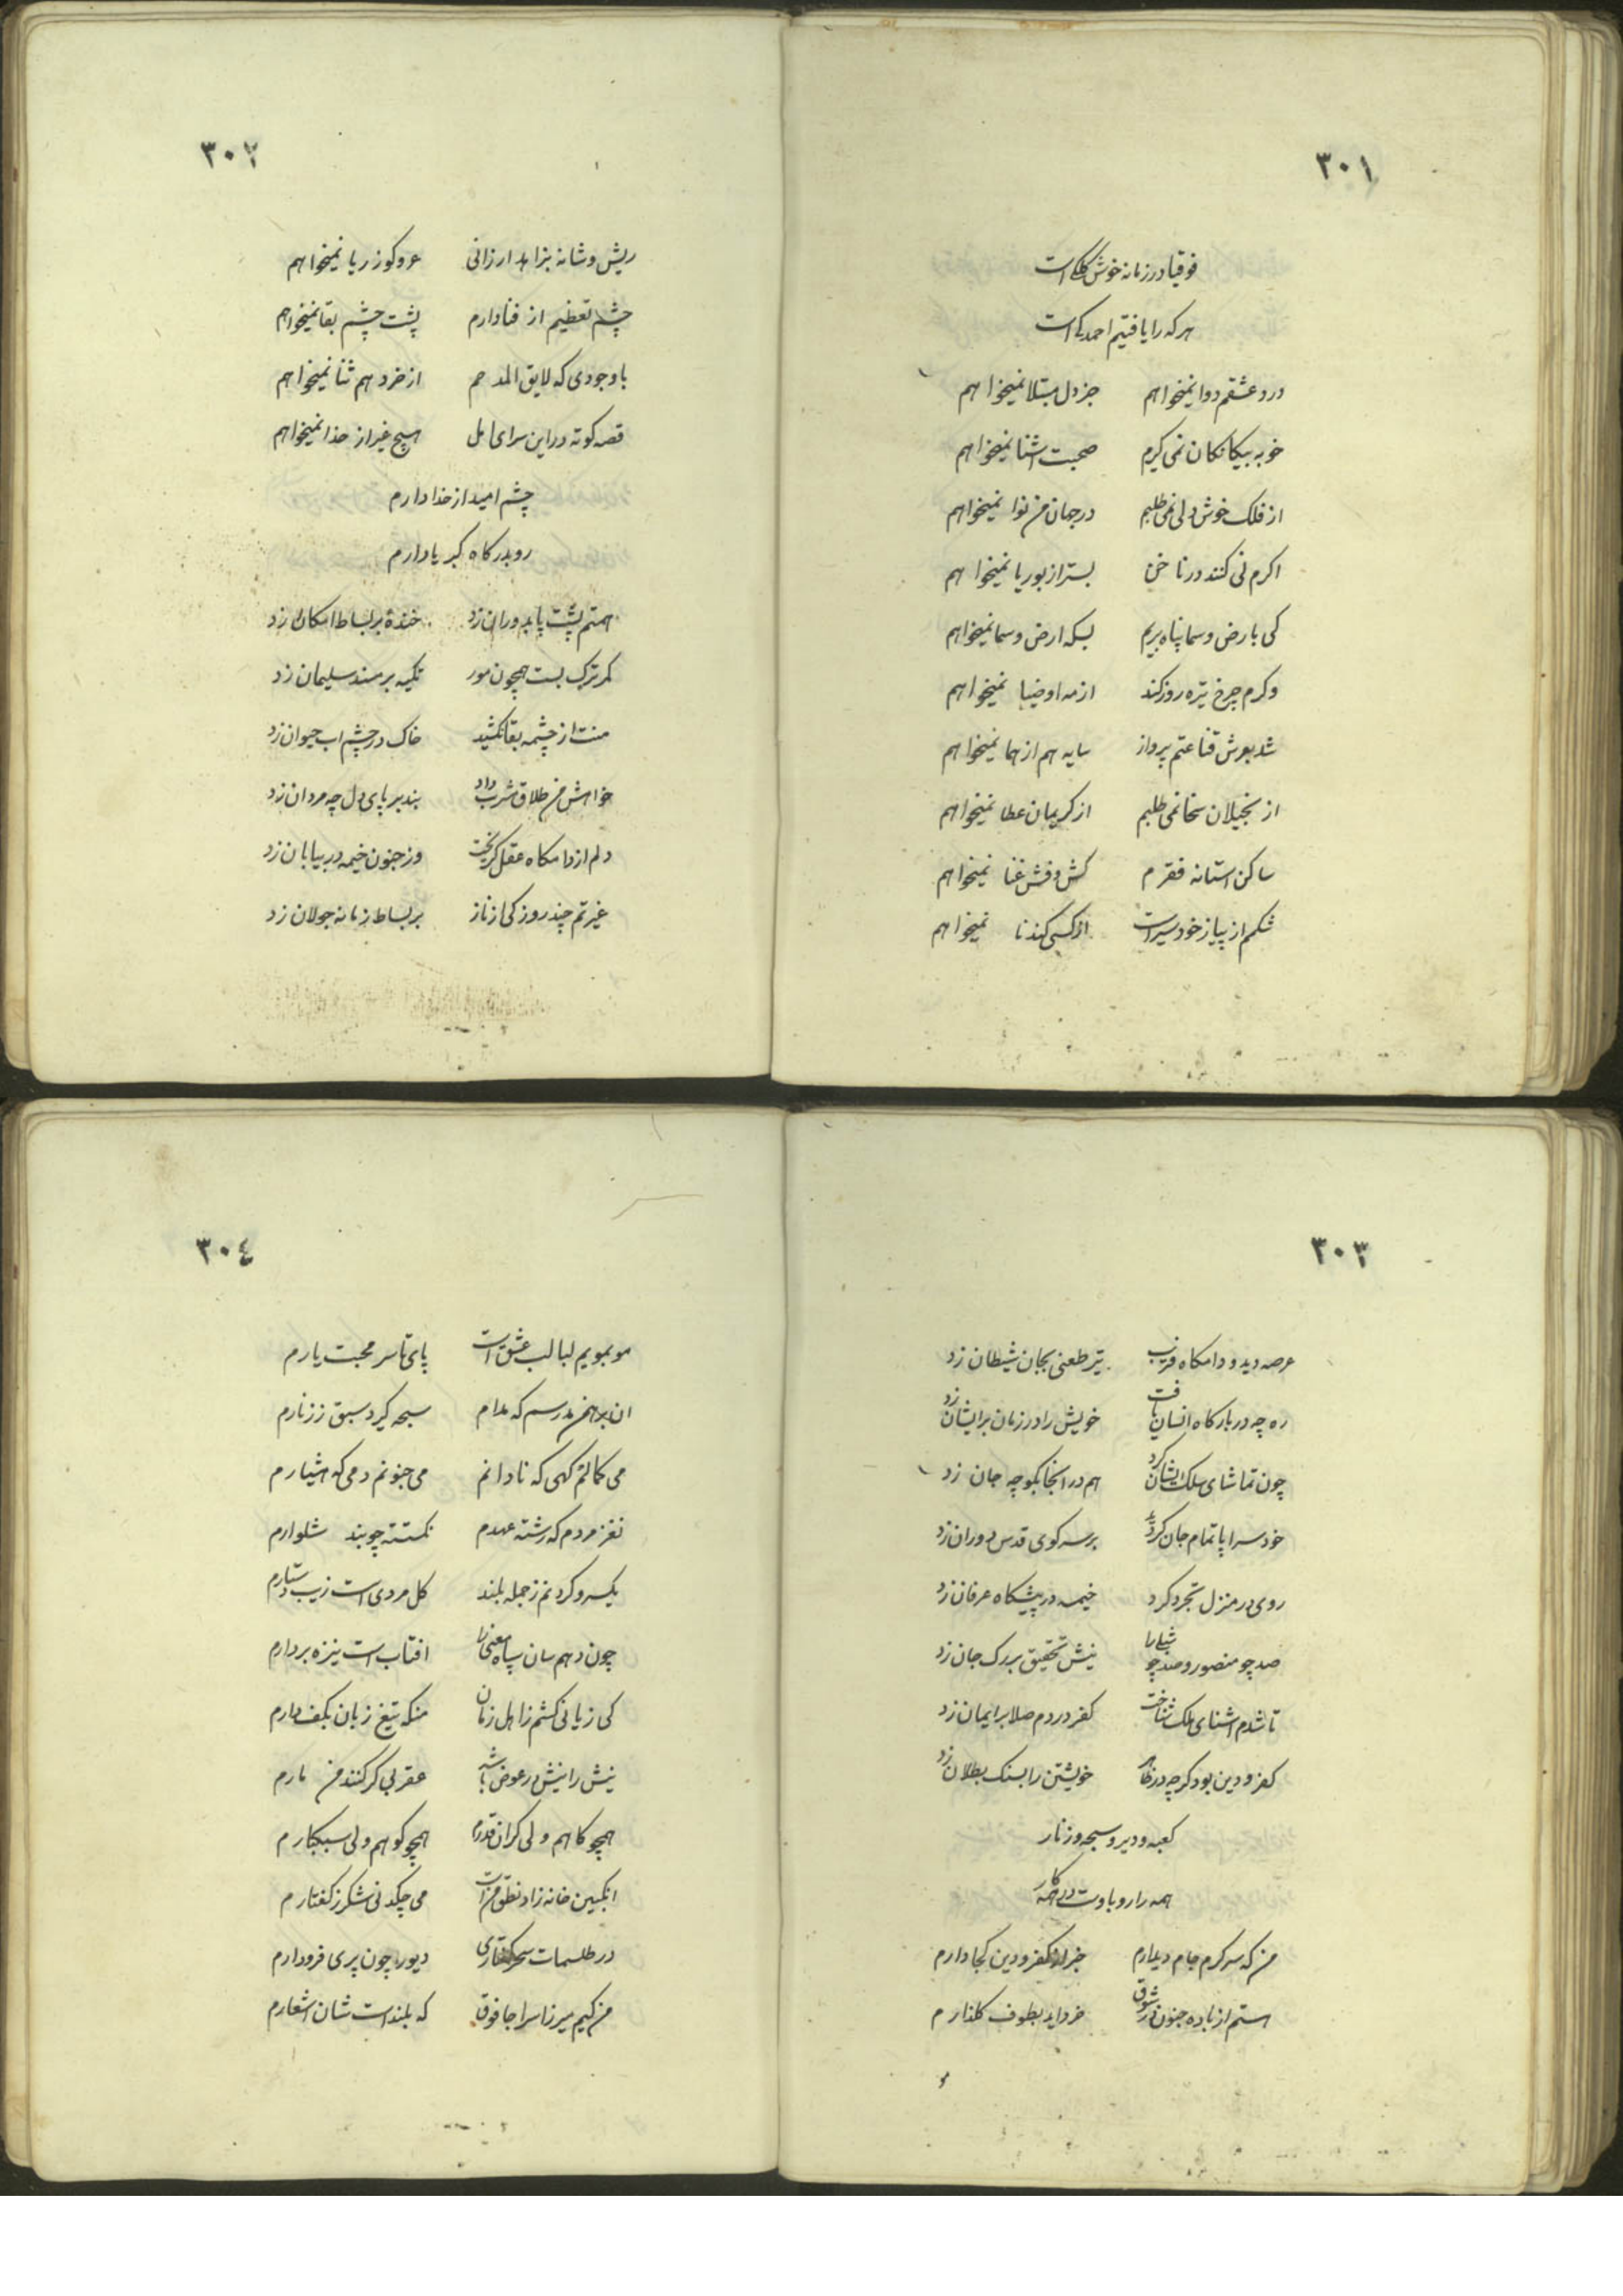 ٣٠١
فوقیا در زمانه خوش کلکی است
هر که را یافتیم احمدکی است
درد عشقم دوا نمیخواهم جز دل مبتلا نمیخواهم
خو به بیکانکان نمی کیرم صحبت اشنا نمیخواهم
از فلک خوش دلی نمی طلبم در جهان من نوا نمیخواهم
اکرم نی کنند در ناخن بستر از بوریا نمیخواهم
کی بارض و سما پناه بریم بسکه ارض و سما نمیخواهم
وکرم چرخ تیره روز کند از مه او ضیا نمیخواهم
شد بعرش قناعتم پرواز سایه هم از هما نمیخواهم
از بخیلان سخا نمی طلبم از کریمان عطا نمیخواهم
ساکن استانه فقرم کش و فش غنا نمیخواهم
شکم از پیاز خود سیر است از کسی کندنا نمیخواهم
٣٠٢
ریش و شانه بزاهد ارزانی عر و کوز ریا نمیخواهم
چشم تعظیم از فنا دارم پشت چشم بقا نمیخواهم
با وجودی که لایق المدحم از خرد هم ثنا نمیخواهم
قصه کوته در این سرای اهل هیچ غیر از خدا نمیخواهم
چشم امید از خدا دارم
رو بدرکاه کبریا دارم
همتم پشت پا بدوران زد خندهٔ بر بساط امکان زد
کمر ترک بست همچون مور تکیه بر مسند سلیمان زد
منت از چشمه بقا نکشید خاک در چشم اب حیوان زد
خواهش من طلاق شرب داد بند بر پای دل چه مردان زد
دلم از دامکاه عقل کریخت وز جنون خیمه در بیابان زد
غیرتم چند روزکی از ناز بر بساط زمانه جولان زد
٣٠٣
عرصه دید و دامکاه فریب تیر طعنی بجان شیطان زد
ره چه در بارکاه انسان یافت خویش را در زمان بر ایشان زد
چون تماشای ملک ایشان کرد هم در انجا بکوچه جان زد
خود سراپا تمام جان کردید بر سر کوی قدس دوران زد
روی در منزل تجرد کرد خیمه در پیشکاه عرفان زد
صد چو منصور و صد چو شبلی را نیش تحقیق بر رک جان زد
تا شدم اشنای ملک شناخت کفر در دم صلا بر ایمان زد
کفر و دین بود کرچه در نظر خویشتن را بسنک بطلان زد
کعبه و دیر و سبحه و زنار
همه را رو باوست در همه کار
من که سرکرم جام دیدارم خبر از کفر و دین کجا دارم
مستم از باده جنون شوق خرد اید بطوف کلذارم
٣٠٤
مو بمویم لبالب عشق است پای تا سر محبت یارم
ان برهمن مدرسم که مدام سبحه کیرد سبق ز زنارم
می کمالم کهی که نادانم می جنونم دمی که هشیارم
نغز مردم که رشته عهدم نکسته چو بند شلوارم
یکسر و کردنم ز جمله بلند کل مردی است زیب دستارم
چون دهم سان سپاه معنی را افتاب است نیزه بردارم
کی زبانی کشم ز اهل زمان منکه تیغ زبان بکف دارم
نیش را نیش در عوض باشد عقربی کر کنند من مارم
همچو کاهم ولی کران قدرم همچو کوهم ولی سبکبارم
انکبین خانه زاد نطق من است می چکد نی شکر ز کفتارم
در طلسمات سحر کفتاری دیو را چون پری فرو دارم
من کیم میرزا سراجا فوق که بلند است شان اشعارم